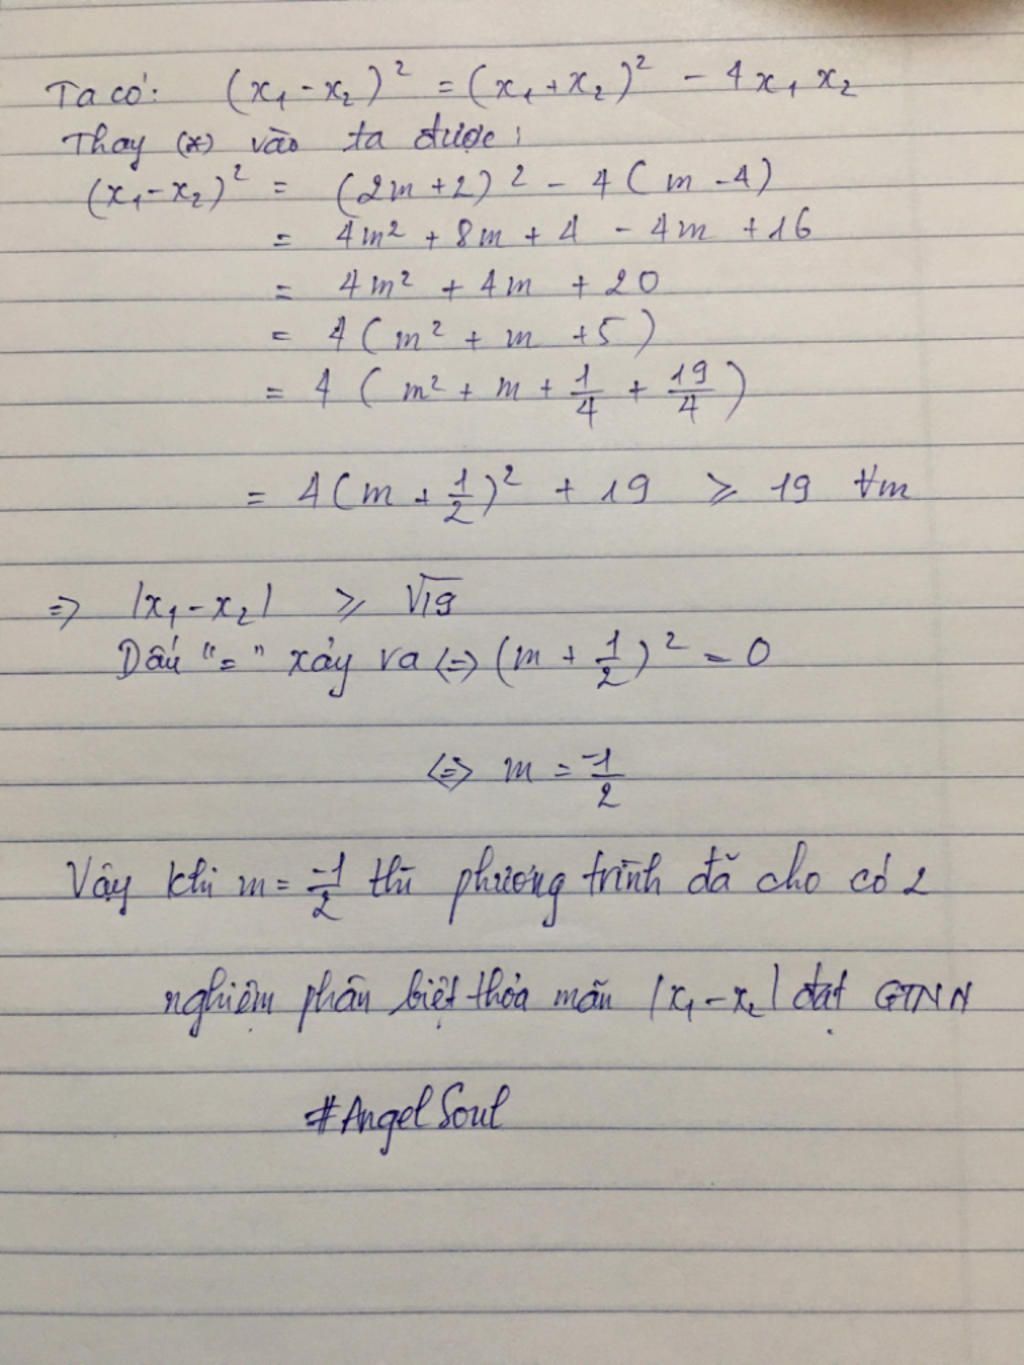 Ta có: (x₁ - x₂)² = (x₁ + x₂)² - 4x₁x₂
Thay (*) vào ta được:
(x₁ - x₂)² = (2m + 2)² - 4(m - 4)
= 4m² + 8m + 4 - 4m + 16
= 4m² + 4m + 20
= 4(m² + m + 5)
= 4(m² + m + 1/4 + 19/4)
= 4(m + 1/2)² + 19 ⩾ 19 ∀m
=> |x₁ - x₂| ⩾ √19
Dấu "=" xảy ra <=> (m + 1/2)² = 0
<=> m = -1/2
Vậy khi m = -1/2 thì phương trình đã cho có 2
nghiệm phân biệt thỏa mãn |x₁ - x₂| đạt GTNN
#Angel Soul